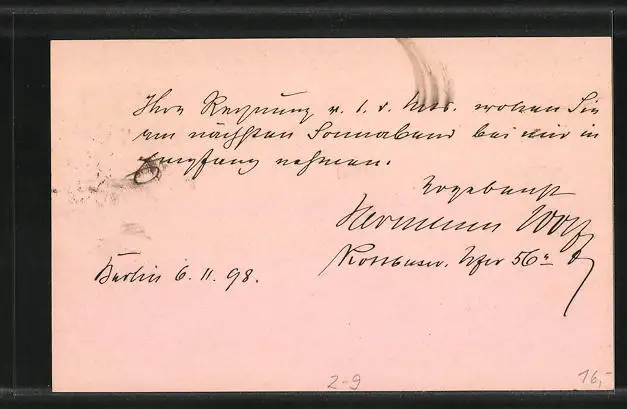 Ihre Rechnung v. 1. d. Mts. wollen Sie
am nächsten Sonnabend bei mir in
Empfang nehmen.
Ergebenst
Hermann Wolff
Kottbuser. Ufer 56a
Berlin 6. 11. 98.
2-9
16,-